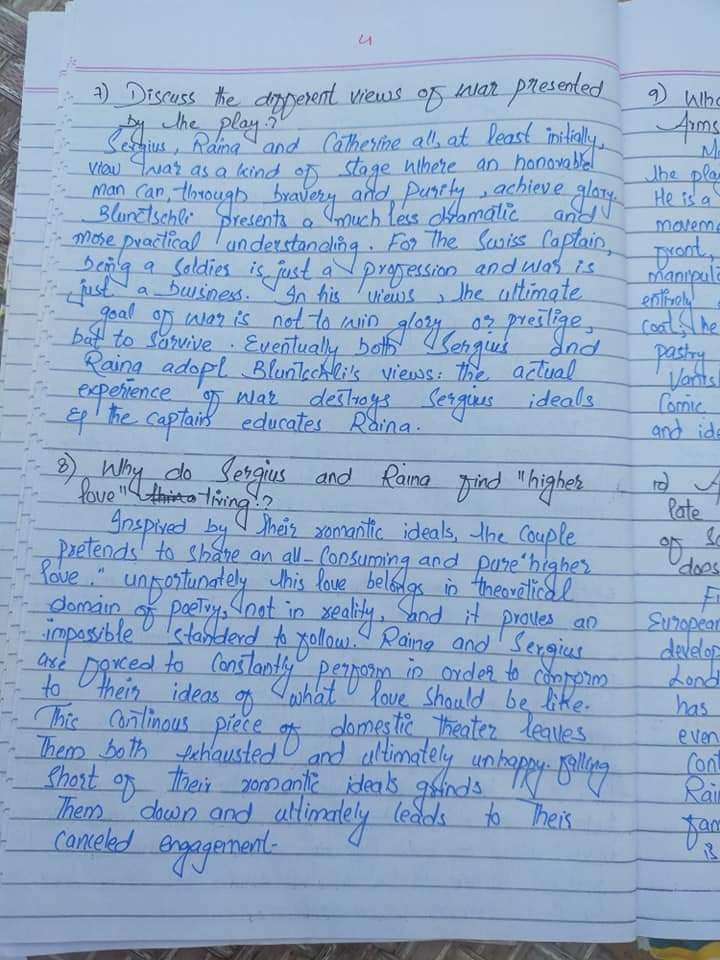 4
7) Discuss the different views of war presented
by the play.?
Sergius, Raina and Catherine all, at least initially,
view war as a kind of stage where an honorable
man can, through bravery and purity, achieve glory.
Bluntschli presents a much less dramatic and
more practical understanding. For the Swiss Captain,
being a soldier is just a profession and war is
just a business. In his views, the ultimate
goal of war is not to win glory or prestige,
but to survive. Eventually both Sergius and
Raina adopt Bluntschli's views: the actual
experience of war destroys Sergius ideals
& the captain educates Raina.
8) Why do Sergius and Raina find "higher
love" living.?
Inspired by their romantic ideals, the couple
pretends to share an all-consuming and pure "higher
love." unfortunately this love belongs in theoretical
domain of poetry, not in reality, and it proves an
impossible standerd to follow. Raina and Sergius
are forced to constantly perform in order to conform
to their ideas of what love should be like.
This continous piece of domestic theater leaves
them both exhausted and ultimately unhappy. falling
short of their romantic ideals grinds
them down and ultimately leads to their
canceled engagement.
9) Who
Arms
the play
He is a
movem
front,
manipul
entirely
coat, he
pastry
Vants
Comic
and ide
10) A
late
of S
does
European
develop
Lond
has
even
Cont
Rai
fam
is